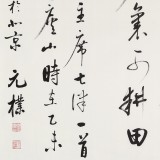 裏可耕田
主席七律一首
廬山時在乙未
於北京
元樸